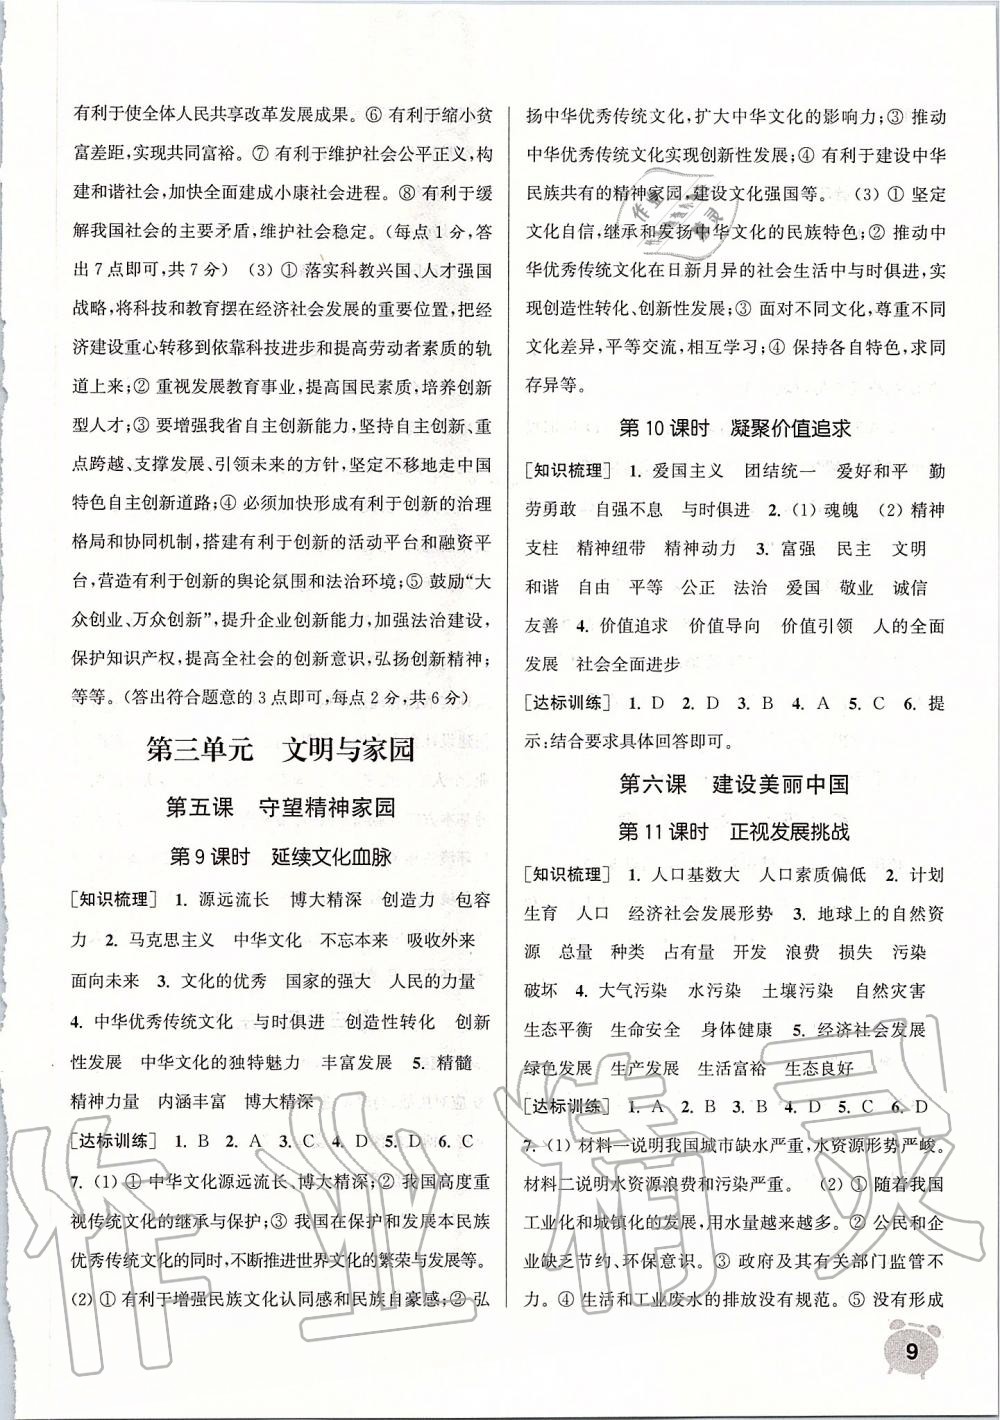 有利于使全体人民共享改革发展成果。⑥ 有利于缩小贫
富差距,实现共同富裕。⑦ 有利于维护社会公平正义,构
建和谐社会,加快全面建成小康社会进程。⑧ 有利于缓
解我国社会的主要矛盾,维护社会稳定。(每点1分,答
出7点即可,共7分) (3) ① 落实科教兴国、人才强国
战略,将科技和教育摆在经济社会发展的重要位置,把经
济建设重心转移到依靠科技进步和提高劳动者素质的轨
道上来;② 重视发展教育事业,提高国民素质,培养创新
型人才;③ 要增强我省自主创新能力,坚持自主创新、重
点跨越、支撑发展、引领未来的方针,坚定不移地走中国
特色自主创新道路;④ 必须加快形成有利于创新的治理
格局和协同机制,搭建有利于创新的活动平台和融资平
台,营造有利于创新的舆论氛围和法治环境;⑤ 鼓励“大
众创业、万众创新”,提升企业创新能力,加强法治建设,
保护知识产权,提高全社会的创新意识,弘扬创新精神;
等等。(答出符合题意的3点即可,每点2分,共6分)
第三单元 文明与家园
第五课 守望精神家园
第9课时 延续文化血脉
[知识梳理] 1. 源远流长 博大精深 创造力 包容
力 2. 马克思主义 中华文化 不忘本来 吸收外来
面向未来 3. 文化的优秀 国家的强大 人民的力量
4. 中华优秀传统文化 与时俱进 创造性转化 创新
性发展 中华文化的独特魅力 丰富发展 5. 精髓
精神力量 内涵丰富 博大精深
[达标训练] 1. B 2. A 3. C 4. D 5. D 6. C
7. (1) ① 中华文化源远流长、博大精深;② 我国高度重
视传统文化的继承与保护;③ 我国在保护和发展本民族
优秀传统文化的同时,不断推进世界文化的繁荣与发展等。
(2) ① 有利于增强民族文化认同感和民族自豪感;② 弘
扬中华优秀传统文化,扩大中华文化的影响力;③ 推动
中华优秀传统文化实现创新性发展;④ 有利于建设中华
民族共有的精神家园,建设文化强国等。 (3) ① 坚定
文化自信,继承和发扬中华文化的民族特色;② 推动中
华优秀传统文化在日新月异的社会生活中与时俱进,实
现创造性转化、创新性发展;③ 面对不同文化,尊重不同
文化差异,平等交流,相互学习;④ 保持各自特色,求同
存异等。
第10课时 凝聚价值追求
[知识梳理] 1. 爱国主义 团结统一 爱好和平 勤
劳勇敢 自强不息 与时俱进 2. (1) 魂魄 (2) 精神
支柱 精神纽带 精神动力 3. 富强 民主 文明
和谐 自由 平等 公正 法治 爱国 敬业 诚信
友善 4. 价值追求 价值导向 价值引领 人的全面
发展 社会全面进步
[达标训练] 1. D 2. D 3. B 4. A 5. C 6. 提
示:结合要求具体回答即可。
第六课 建设美丽中国
第11课时 正视发展挑战
[知识梳理] 1. 人口基数大 人口素质偏低 2. 计划
生育 人口 经济社会发展形势 3. 地球上的自然资
源 总量 种类 占有量 开发 浪费 损失 污染
破坏 4. 大气污染 水污染 土壤污染 自然灾害
生态平衡 生命安全 身体健康 5. 经济社会发展
绿色发展 生产发展 生活富裕 生态良好
[达标训练] 1. A 2. B 3. A 4. B 5. C 6. D
7. (1) 材料一说明我国城市缺水严重,水资源形势严峻。
材料二说明水资源浪费和污染严重。 (2) ① 随着我国
工业化和城镇化的发展,用水量越来越多。② 公民和企
业缺乏节约、环保意识。③ 政府及其有关部门监管不
力。④ 生活和工业废水的排放没有规范。⑤ 没有形成
9
作业精灵
作业精灵